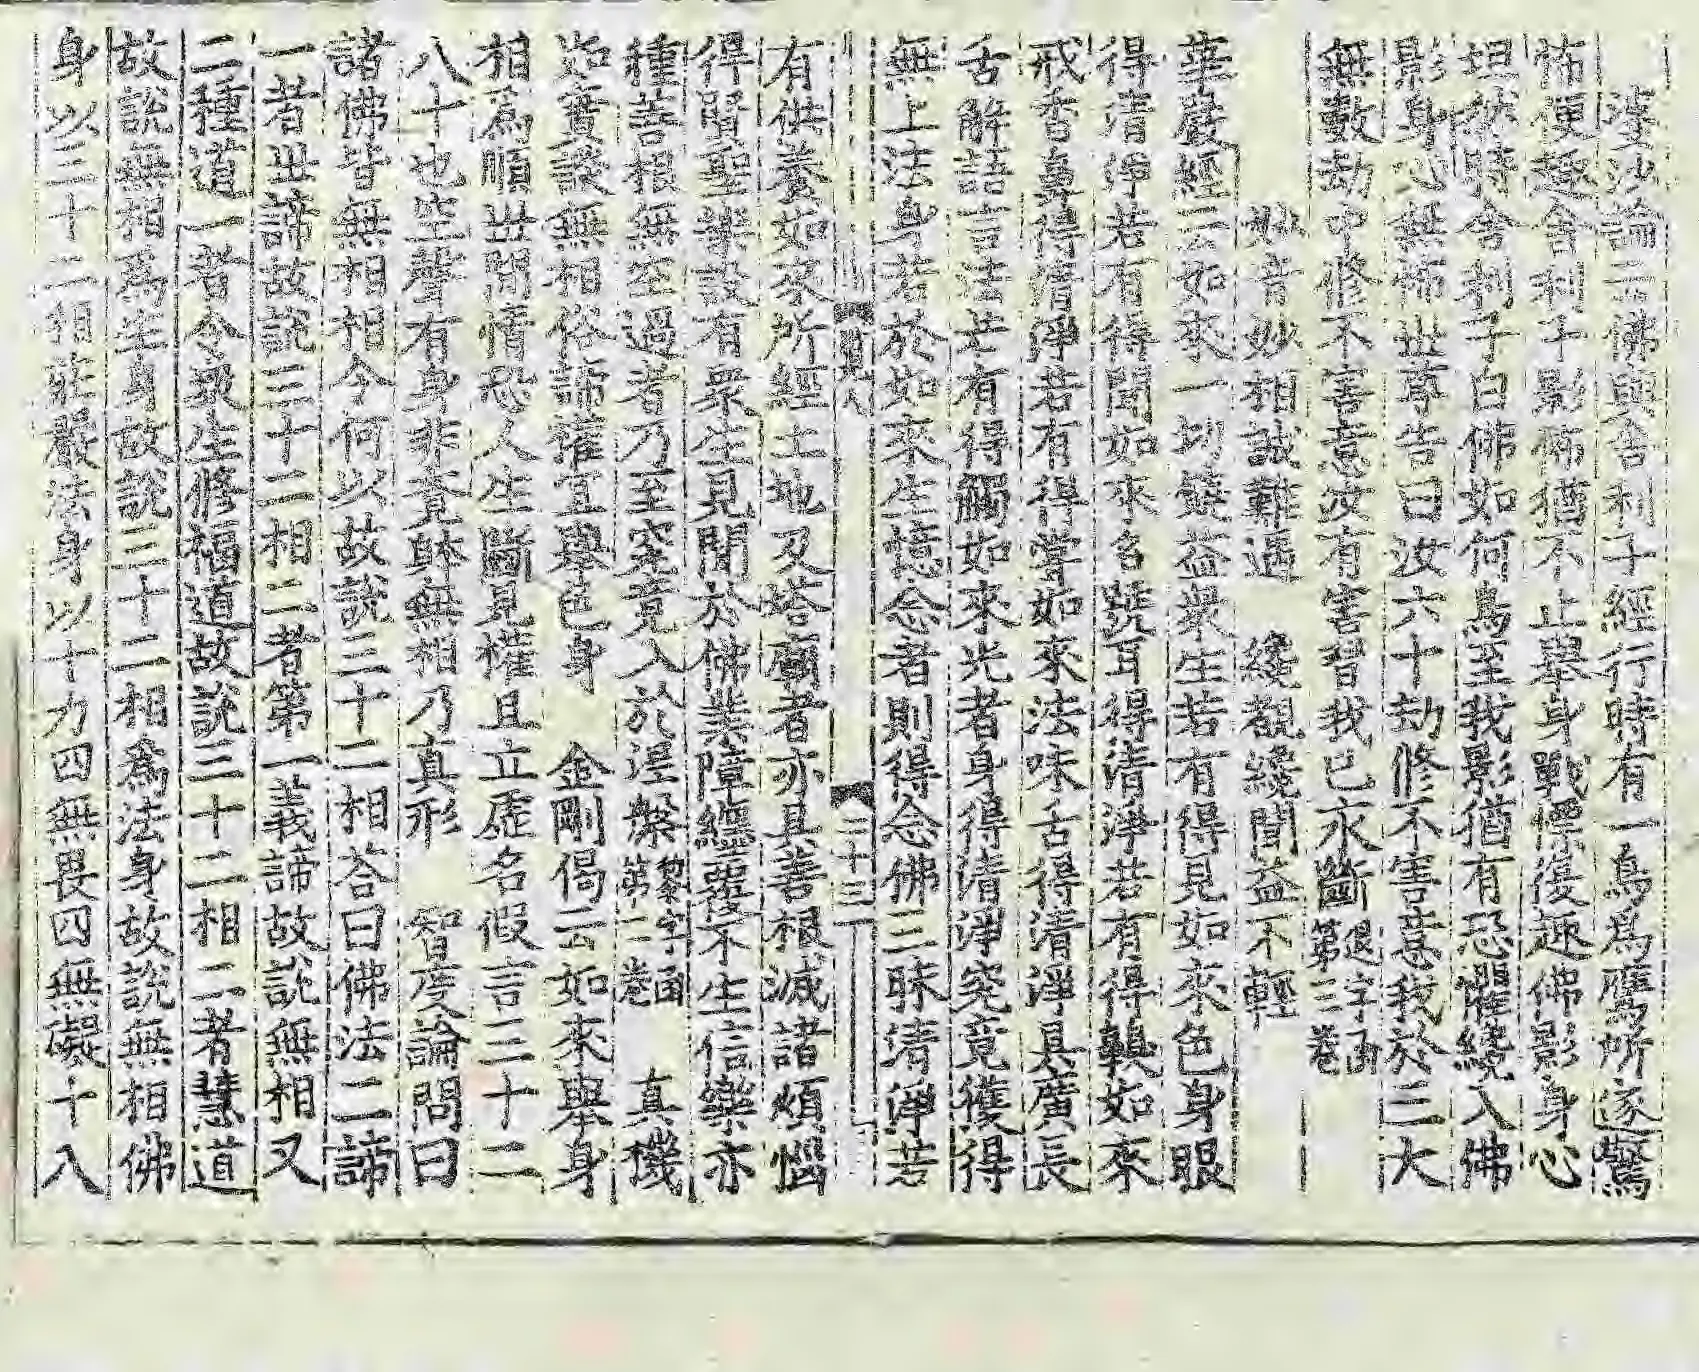 婆沙論云佛與舍利子經行時有一鳥為鷹所逐驚
怖便趣舍利子影怖猶不止舉身戰慄後趣佛影身心
坦然時舍利子白佛如何鳥至我影猶有恐懼纔入佛
影身心無怖世尊告曰汝六十劫修不害意我於三大
無數劫中修不害意汝有害習我已永斷退字函第三卷
妙音妙相誠難遇　纔觀纔聞益不輕
華嚴經云如來一切饒益眾生若有得見如來色身眼
得清淨若有得聞如來名號耳得清淨若有得齅如來
戒香鼻得清淨若有得嘗如來法味舌得清淨具廣長
舌解語言法若有得觸如來光者身得清淨究竟獲得
無上法身若於如來生憶念者則得念佛三昧清淨若
三十三
有供養如來所經土地及塔廟者亦具善根滅諸煩惱
得賢聖樂設有眾生見聞於佛業障纏覆不生信樂亦
種善根無空過者乃至究竟入於涅槃黎字函第二卷　真機
如實談無相俗諦權宜舉色身　金剛偈云如來舉身
相為順世間情恐人生斷見權且立虛名假言三十二
八十也空聲有身非覺體無相乃真形　智度論問曰
諸佛皆無相相今何以故說三十二相荅曰佛法二諦
一者世諦故說三十二相二者第一義諦故說無相又
二種道一者令眾生修福道故說三十二相二者慧道
故說無相為生身故說三十二相為法身故說無相佛
身以三十二相莊嚴法身以十力四無畏四無礙十八